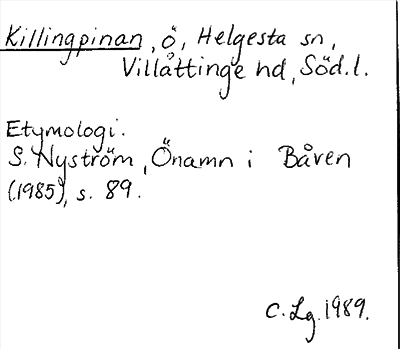 Killingpinan, ö, Helgesta sn,
Villåttinge hd, Söd.l.
Etymologi.
S. Nyström, Önamn i Båven
(1985), s. 89.
C. Lg. 1989.